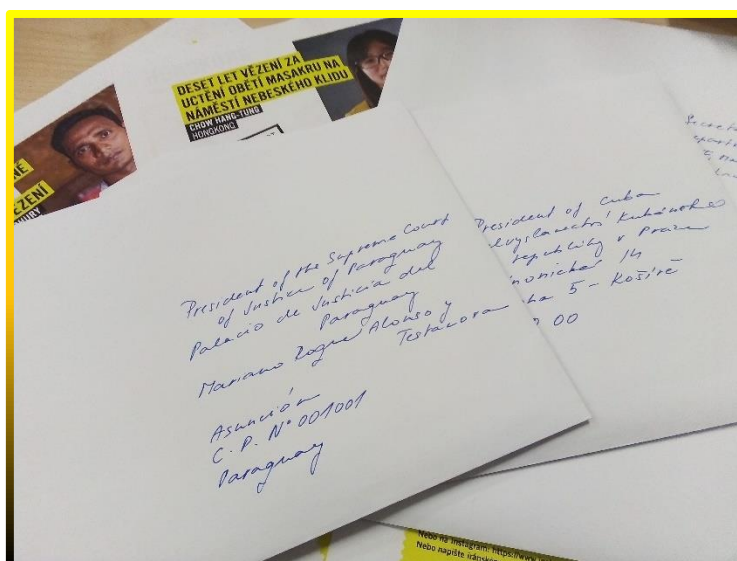 DESET LET VĚZENÍ ZA
UCTĚNÍ OBĚTÍ MASAKRU NA
NÁMĚSTÍ NEBESKÉHO KLIDU
CHOW HANG-TUNG
HONGKONG
President of the Supreme Court
of Justice of Paraguay
Palacio de Justicia del
Paraguay
Mariano Roque Alonso y
Testanova
Asunción
C. P. N° 001001
Paraguay
President of Cuba
Kubánské
republiky v Praze
14
5 - Košíře
00
Nebo na Instagram: https://www
Nebo napište